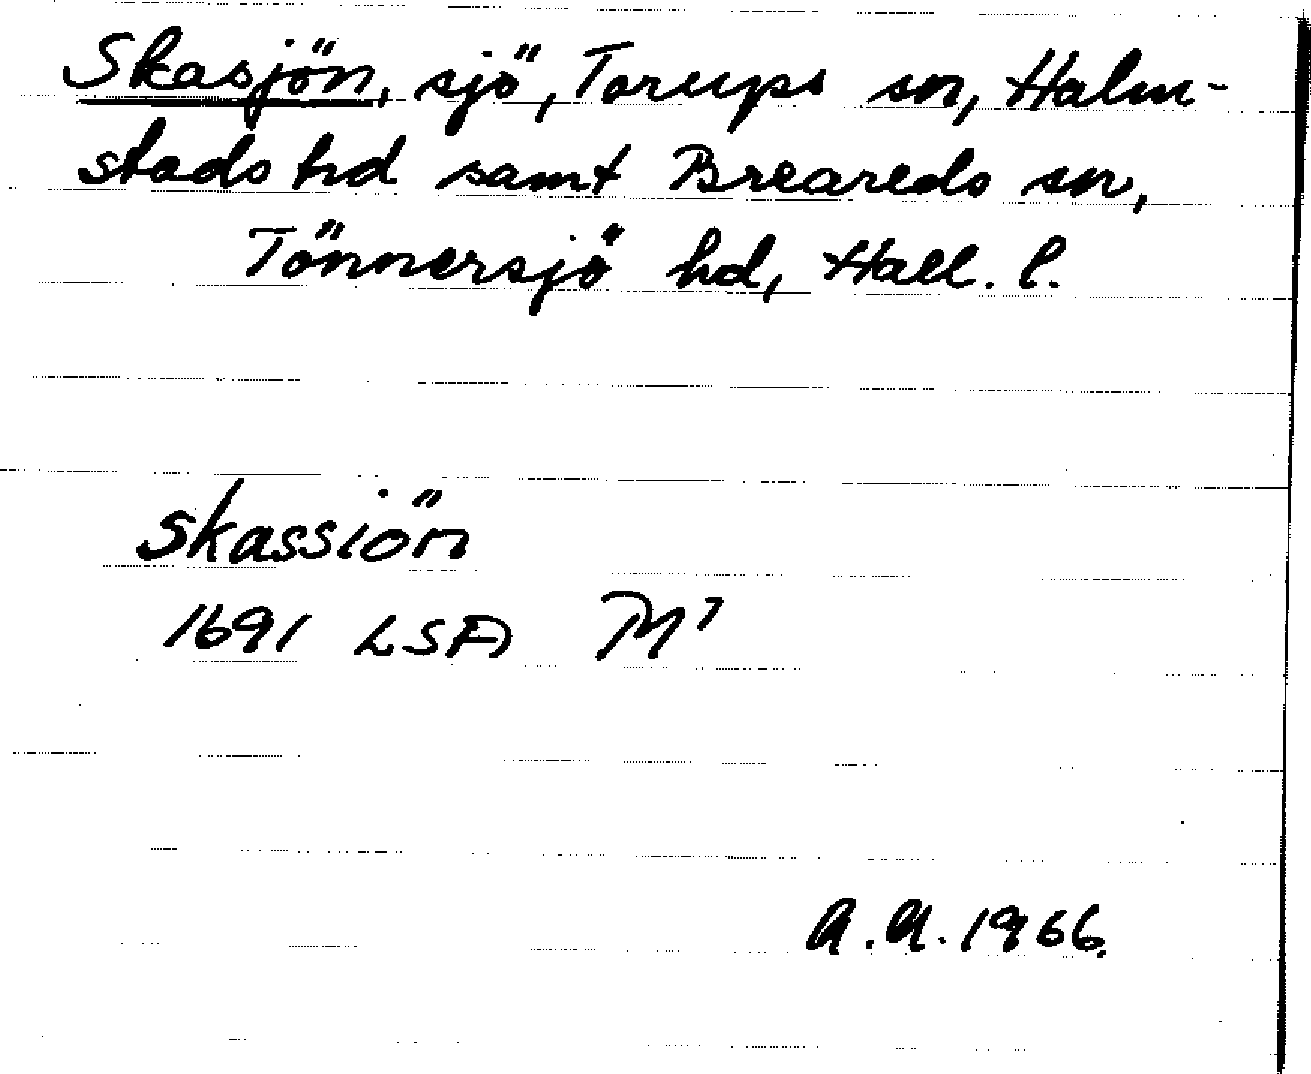 Skasjön, sjö, Torups sn, Halm-
stads hd samt Breareds sn,
Tönnersjö hd, Hall. l.
Skassiön
1691 LSA M7
A.A. 1966.